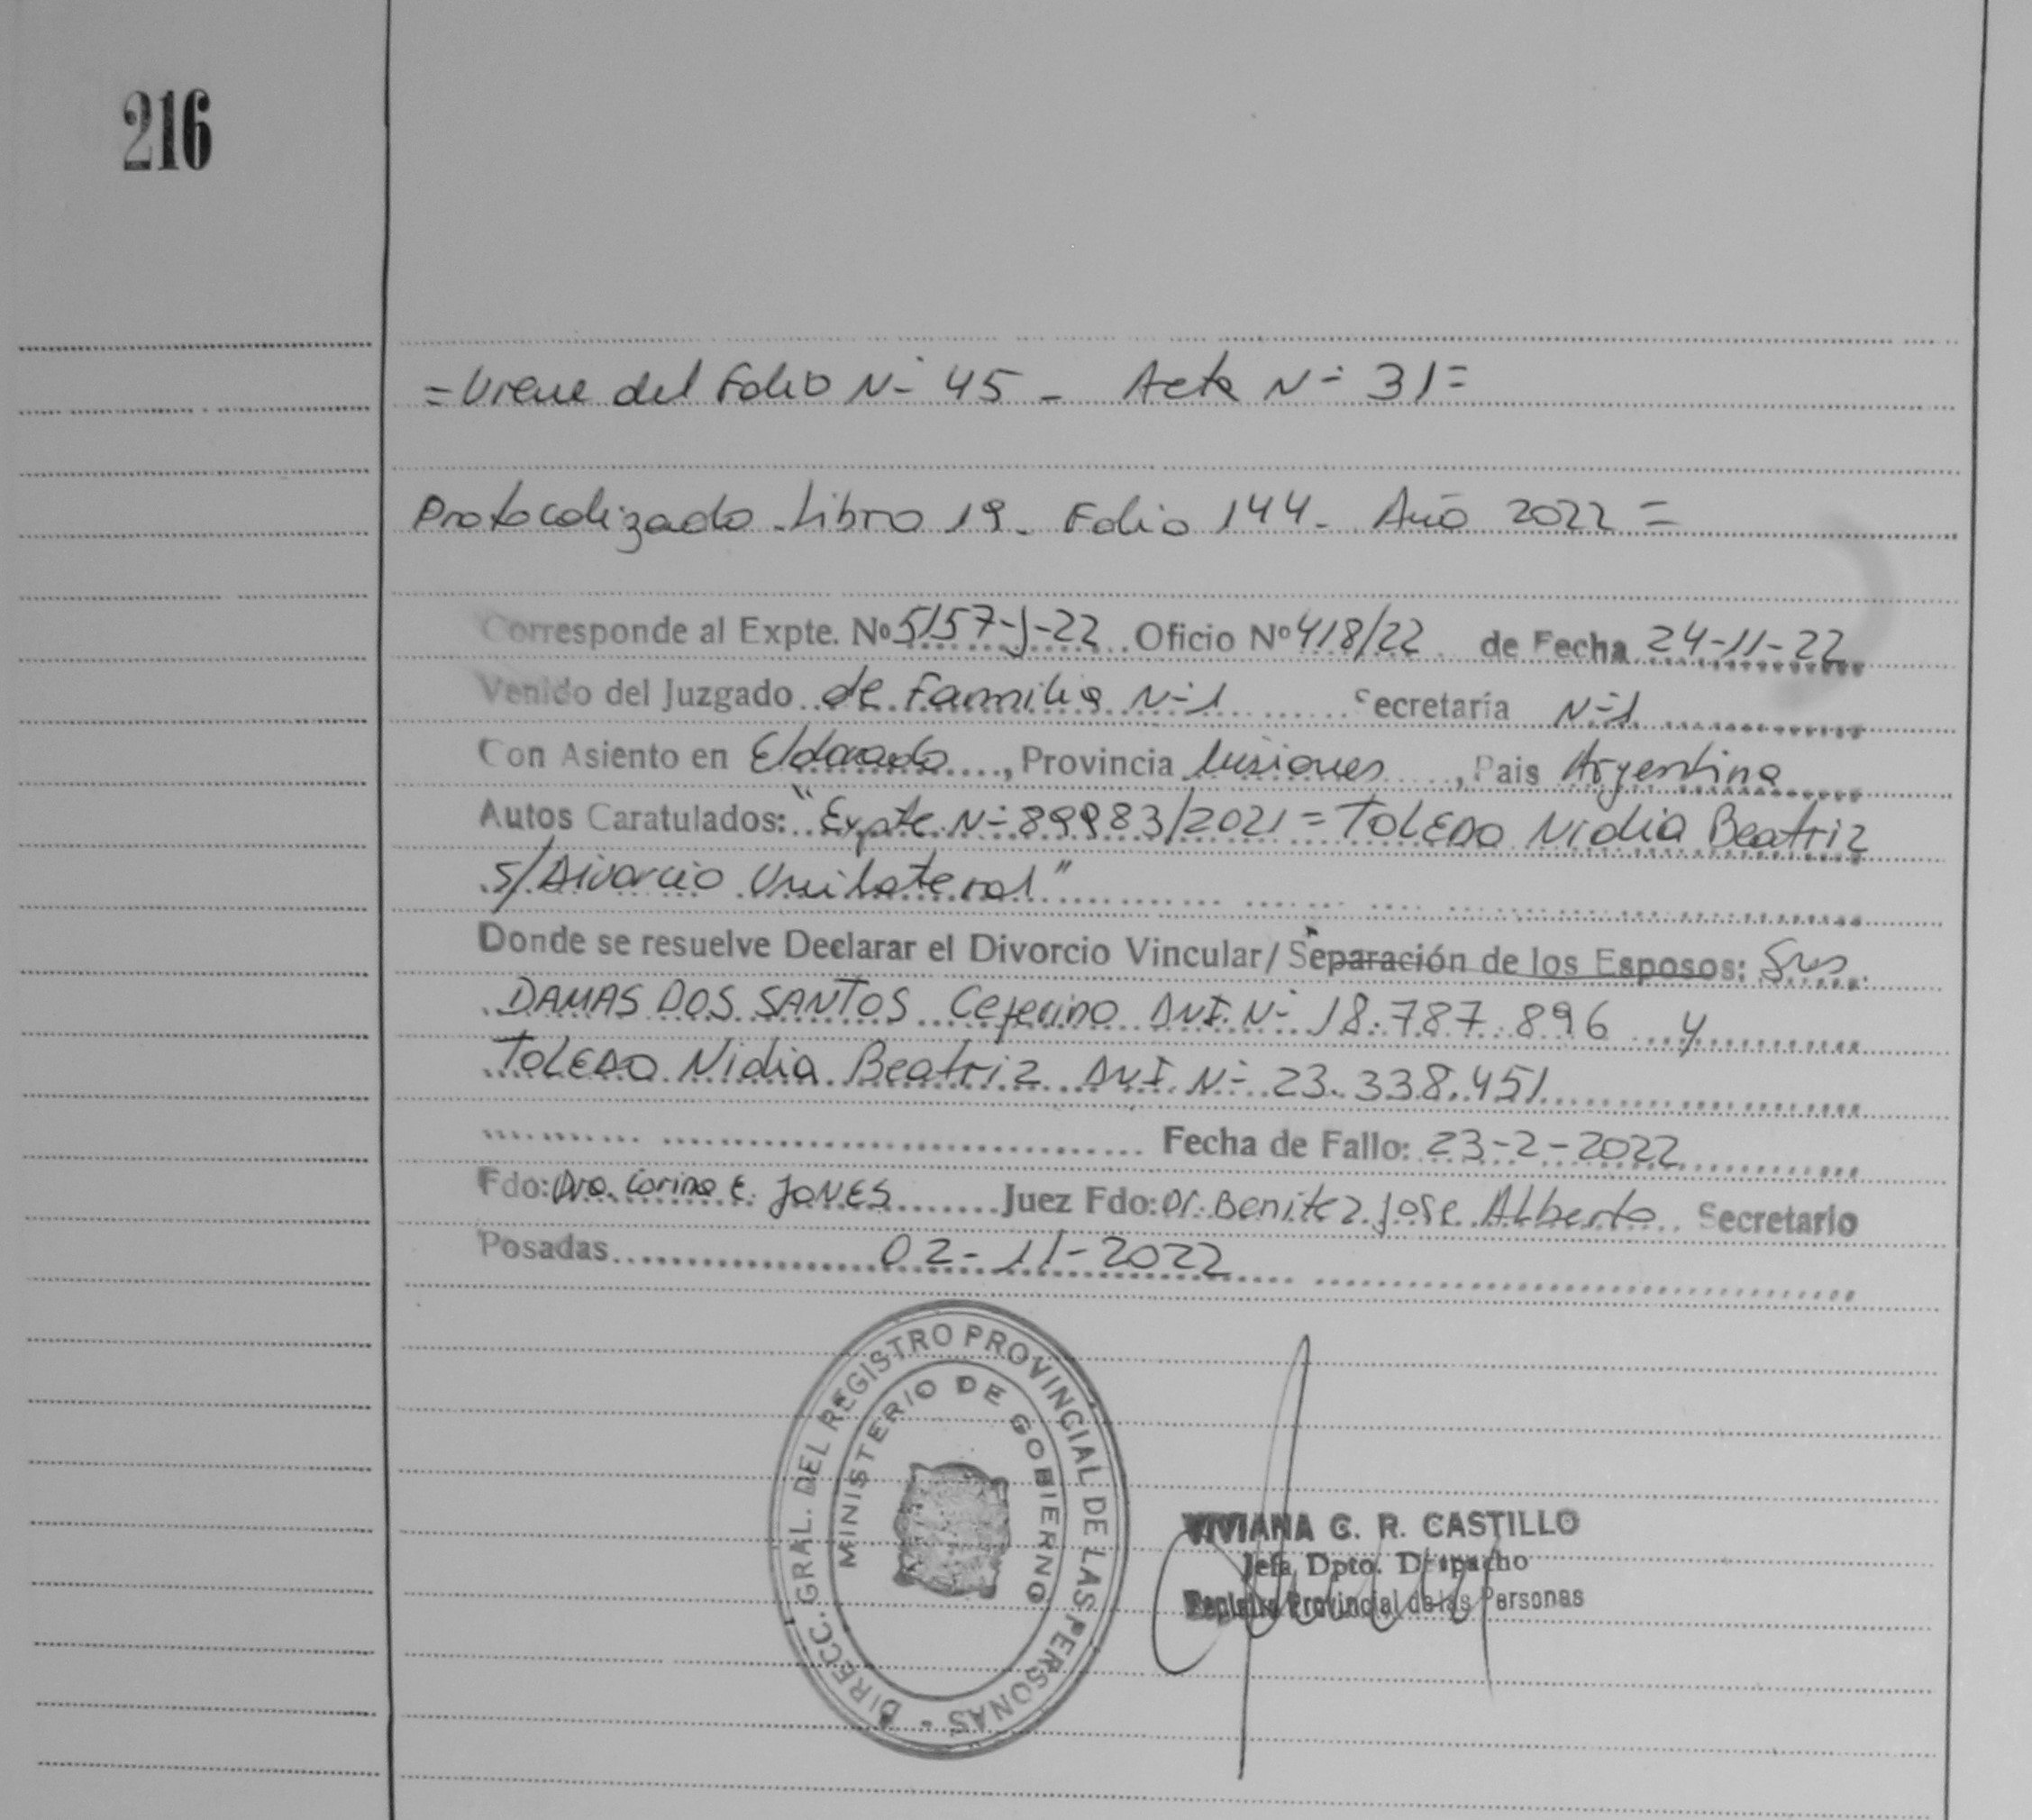 216
=Viene del Folio N- 45 - Acta N- 31=
Protocolizado Libro 19- Folio 144- Año 2022=
Corresponde al Expte. Nº 5157-J-22 Oficio Nº 418/22 de Fecha 24-11-22
Venido del Juzgado de Familia N-1 Secretaría N-1
Con Asiento en Eldorado, Provincia Misiones, Pais Argentina
Autos Caratulados: "Expte N- 89983/2021 = TOLEDO Nidia Beatriz
s/Divorcio Unilateral"
Donde se resuelve Declarar el Divorcio Vincular/ Separación de los Esposos: Sres
DAMAS DOS SANTOS Ceferino DNI. N- 18.787.896 y
TOLEDO Nidia Beatriz DNI N- 23.338.451
Fecha de Fallo: 23-2-2022
Fdo: Dra. Corina E. JONES Juez Fdo: Dr. Benitez Jose Alberto Secretario
Posadas 02-11-2022
DIRECC. GRAL. DEL REGISTRO PROVINCIAL DE LAS PERSONAS -
MINISTERIO DE GOBIERNO
VIVIANA G. R. CASTILLO
Jefa Dpto. Despacho
Registro Provincial de las Personas